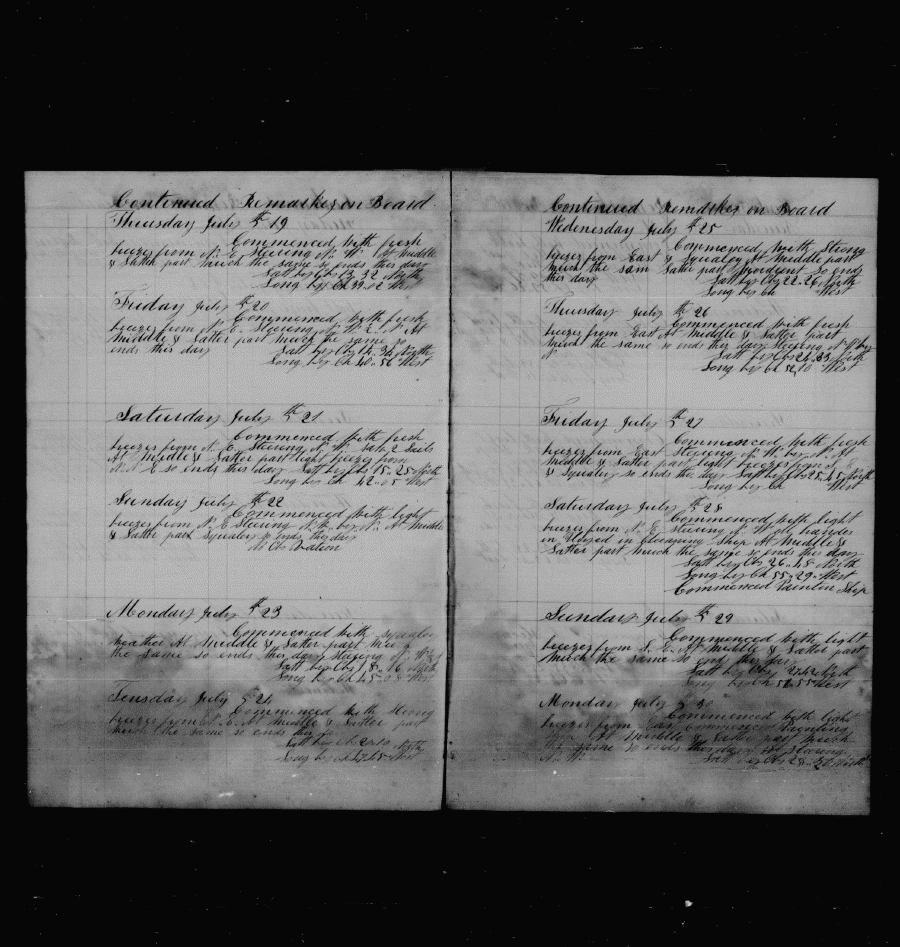 Continued Remarkes on Board
Thursday July th 19
Commenced with fresh
breezes from N. E. Steering N. W. At Middle
& Latter part much the same so ends this day
Latt by Obs 13.32 North
Long by Ch 39.02 West
Friday July th 20
Commenced with fresh
breezes from N. E. Steering N. W. At
Middle & Latter part much the same so
ends this day Latt by Obs North
Long by Ch 40.56 West
Saturday July th 21
Commenced with fresh
breezes from N. E. Steering N. W. 2 Sails
At Middle & Latter part light breezes from
N. N. E. so ends this day Latt by Obs 15.25 North
Long by Ch 42.05 West
Sunday July th 22
Commenced with light
breezes from N. E Steering N. W. by N. At Middle
& Latter part Squaly so ends this day
No Obs vation
Monday July th 23
Commenced with squaly
weather At Middle & Latter part
the same so ends this day steering N. W.
Latt by Obs 18.16 North
Long by Ch 45.08 West
Teusday July 24
Commenced with Strong
breezes from N. E. At Middle & Latter part
much the same so ends this
Latt by Ch 20.10 North
Long by Ch West
Continued Remarkes on Board
Wednesday July th 25
Commenced with Strong
breezes from East & Squaley At Middle part
much the sam Latter part so ends
this day Latt by Obs 22.26 North
Long by Ch West
Thursday July th 26
Commenced with fresh
breezes from East At Middle & Latter part
much the same so ends this day Steering N. W by
N. Latt by Obs 24.33 North
Long by Ch 52.10 West
Friday July th 27
Commenced with fresh
breezes from East Steering N. W. by N. At
Middle & Latter part light breezes from
& Squaley so ends the day Latt by Obs 25.45 North
Long by Ch West
Saturday July th 28
Commenced with light
breezes from N. E. Steering N. W all handes
in Cleaning Ship At Middle &
Latter part much the same so ends this day
Latt by Obs 26.48 North
Long by Ch 55.29 West
Commenced Paintin Ship
Sunday July th 29
Commenced with light
breezes from S. E. At Middle & Latter part
much the same so end this day
Latt by Obs 27.42 North
Long by Ch 57.55 West
Monday July 30
Commenced with light
breezes from East Commenced Painting
At Middle & Latter part much
the same so ends this day Steering
N. W. Latt by Obs North